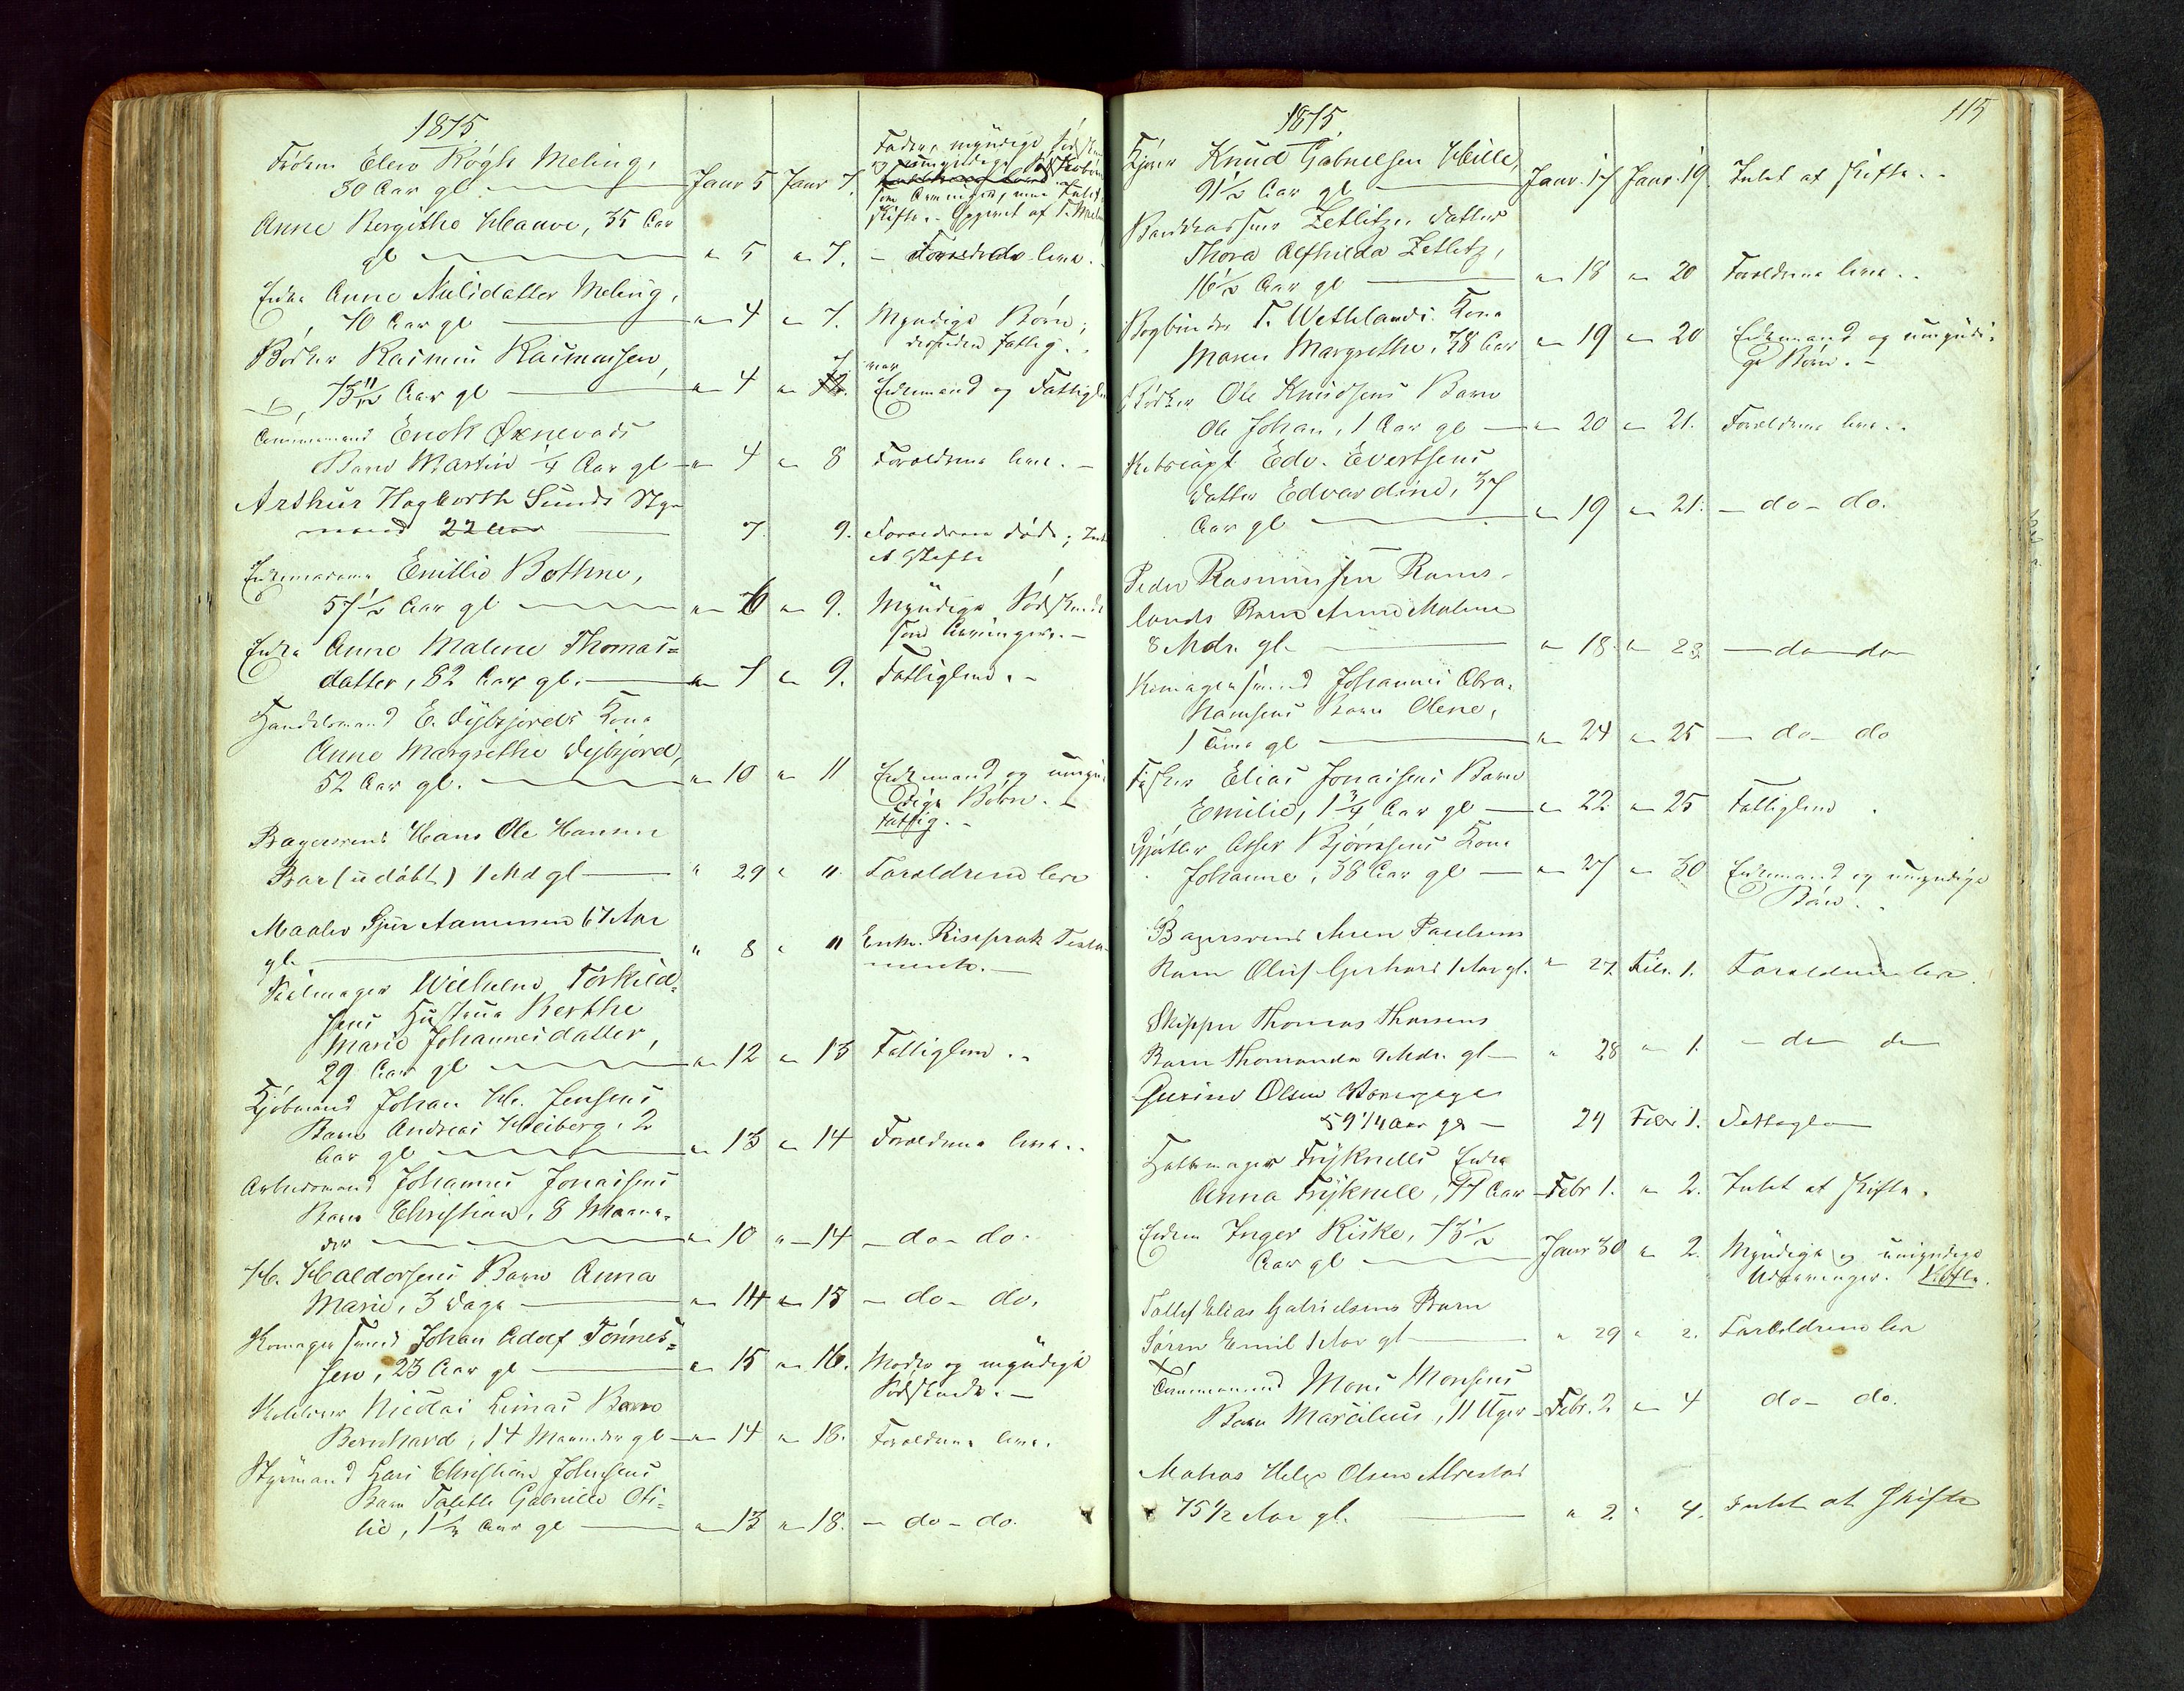 1875
Frøken Elen Kogh Meling,
30 Aar gl Janr 5 Janr 7.
Fader, myndige Sødskende
og umyndige
som Arvinger, men Intet
Skifte. - Opgivet af T. Meling
Anne Bergithe Haave, 35 Aar
gl " 5 " 7. - Forældrene leve.
Enke Anne Nielsdatter Meling,
70 Aar gl " 4 " 7. Myndige Børn;
desuden fattig.
Bødker Rasmus Rasmussen,
73 11/12 Aar gl " 4 " 7. Enkemand og Fattiglem
Tømmermand Enok Øxnevads
Barn Martin 1/4 Aar gl " 4 " 8 Forældrene leve. -
Arthur Hagbarth Sunds Styr-
mand 22 Aar 7. 9. Forældrene døde; Intet
at Skifte
Enkemadame Emilie Bothne,
57 1/2 Aar gl " 6 " 9. Myndige Sødskende
som Arvinger. -
Enke Anne Malene Thomas-
datter, 82 Aar gl. " 7 " 9. Fattiglem. -
Handelsmand E. Dybfjords Kone
Anne Margrethe Dybfjord,
52 Aar gl. " 10 " 11 Enkemand og umyn-
dige Børn. -
Fattig. -
Bagersvend Hans Ole Hansen
Bar (udøbt) 1 Md gl " 29 " 11. Forældrene leve
Maaler Sjur Aamunsen 67 Aar
gl. " 8 " 11 Enke. Reciprok Testa-
mente. -
Seilmager Wilhelm Torkild-
sens Hustrue Berthe
Marie Johannesdatter,
29 Aar gl " 12 " 13 Fattiglem. -
Kjøbmand Johan H. Jensens
Barn Andreas Heiberg, 2
Aar gl " 13 " 14 Forældrene leve. -
Arbeidsmand Johannes Jonassens
Barn Christian, 8 Maane-
der " 10 " 14 - do - do.
H. Haldorsens Barn Anna
Marie, 3 Dage " 14 " 15 - do - do.
Komagersvend Johan Adolf Tønnes-
sen, 23 Aar gl " 15 " 16. Moder og myndige
Sødskende. -
Nicolai Limas Barn
Bernhard, 14 Maaneder gl " 14 " 18. Forældrene leve.
Styrmand Lars Christian Johnsens
Barn Talette Gabrielle Oti-
lie, 1 1/2 Aar gl " 13 " 18. - do - do.
1875 115
Knud Gabrielsen Hille,
91 1/2 Aar gl Janr. 17 Janr. 19. Intet at skifte. -
Bankkasserer Zetlitz, Datter
Thora Alfhilda Zetlitz,
16 1/2 Aar gl " 18 " 20 Forældrene leve. -
Bogbinder T. Wethlands Kone
Maren Margrethe, 38 Aar " 19 " 20 Enkemand og umyndi-
ge Børn. -
Bødker Ole Knudsens Barn
Ole Johan, 1 Aar gl " 20 " 21. Forældrene leve. -
Edv. Evertsens
Datter Edvardine, 37
Aar gl " 19 " 21. - do - do.
Peder Rasmussen Rams-
lands Barn Anne Malene
8 Mdr. gl. " 18. " 23. - do - do
Komagersvend Johannes Abra-
hamsens Barn Olene,
1 Time gl " 24 " 25 - do - do
Fisker Elias Jonassens Barn
Emilie, 1 3/4 Aar gl " 22 " 25 Fattiglem.
Gjørtler Asser Bjørnsens Kone
Johanne, 38 Aar gl " 27 " 30 Enkemand og umyndige
Børn. -
Bagersvend Aren Paulsens
Barn Oluf Gerhard 1 Aar gl. " 27. Febr. 1. Forældrene leve.
Skipper Thomas Thorsens
Barn Thomanda 9 Mdr. gl " 28 " 1. - do do
Gurine Olsen
59 1/4 Aar gl - 29 Febr 1. Fattiglem
Hattemager Fryknells Enke
Anna Fryknell, 77 Aar Febr 1. " 2. Intet at skifte.
Enkem Inger Kiske, 73 1/2
Aar gl Janr 30 " 2. Myndige og umyndige
Udarvinger. Skifte.
Elias Gabrielsens Barn
Søren Emil 1 Aar gl " 29 " 2. Forældrene leve
Tømmermand Mons Monsens
Barn Marselius, 11 Uger Febr. 2 " 4 do - do.
Matros Helge Olsen Alvestad
75 1/2 Aar gl. " 2. " 4. Intet at Skifte